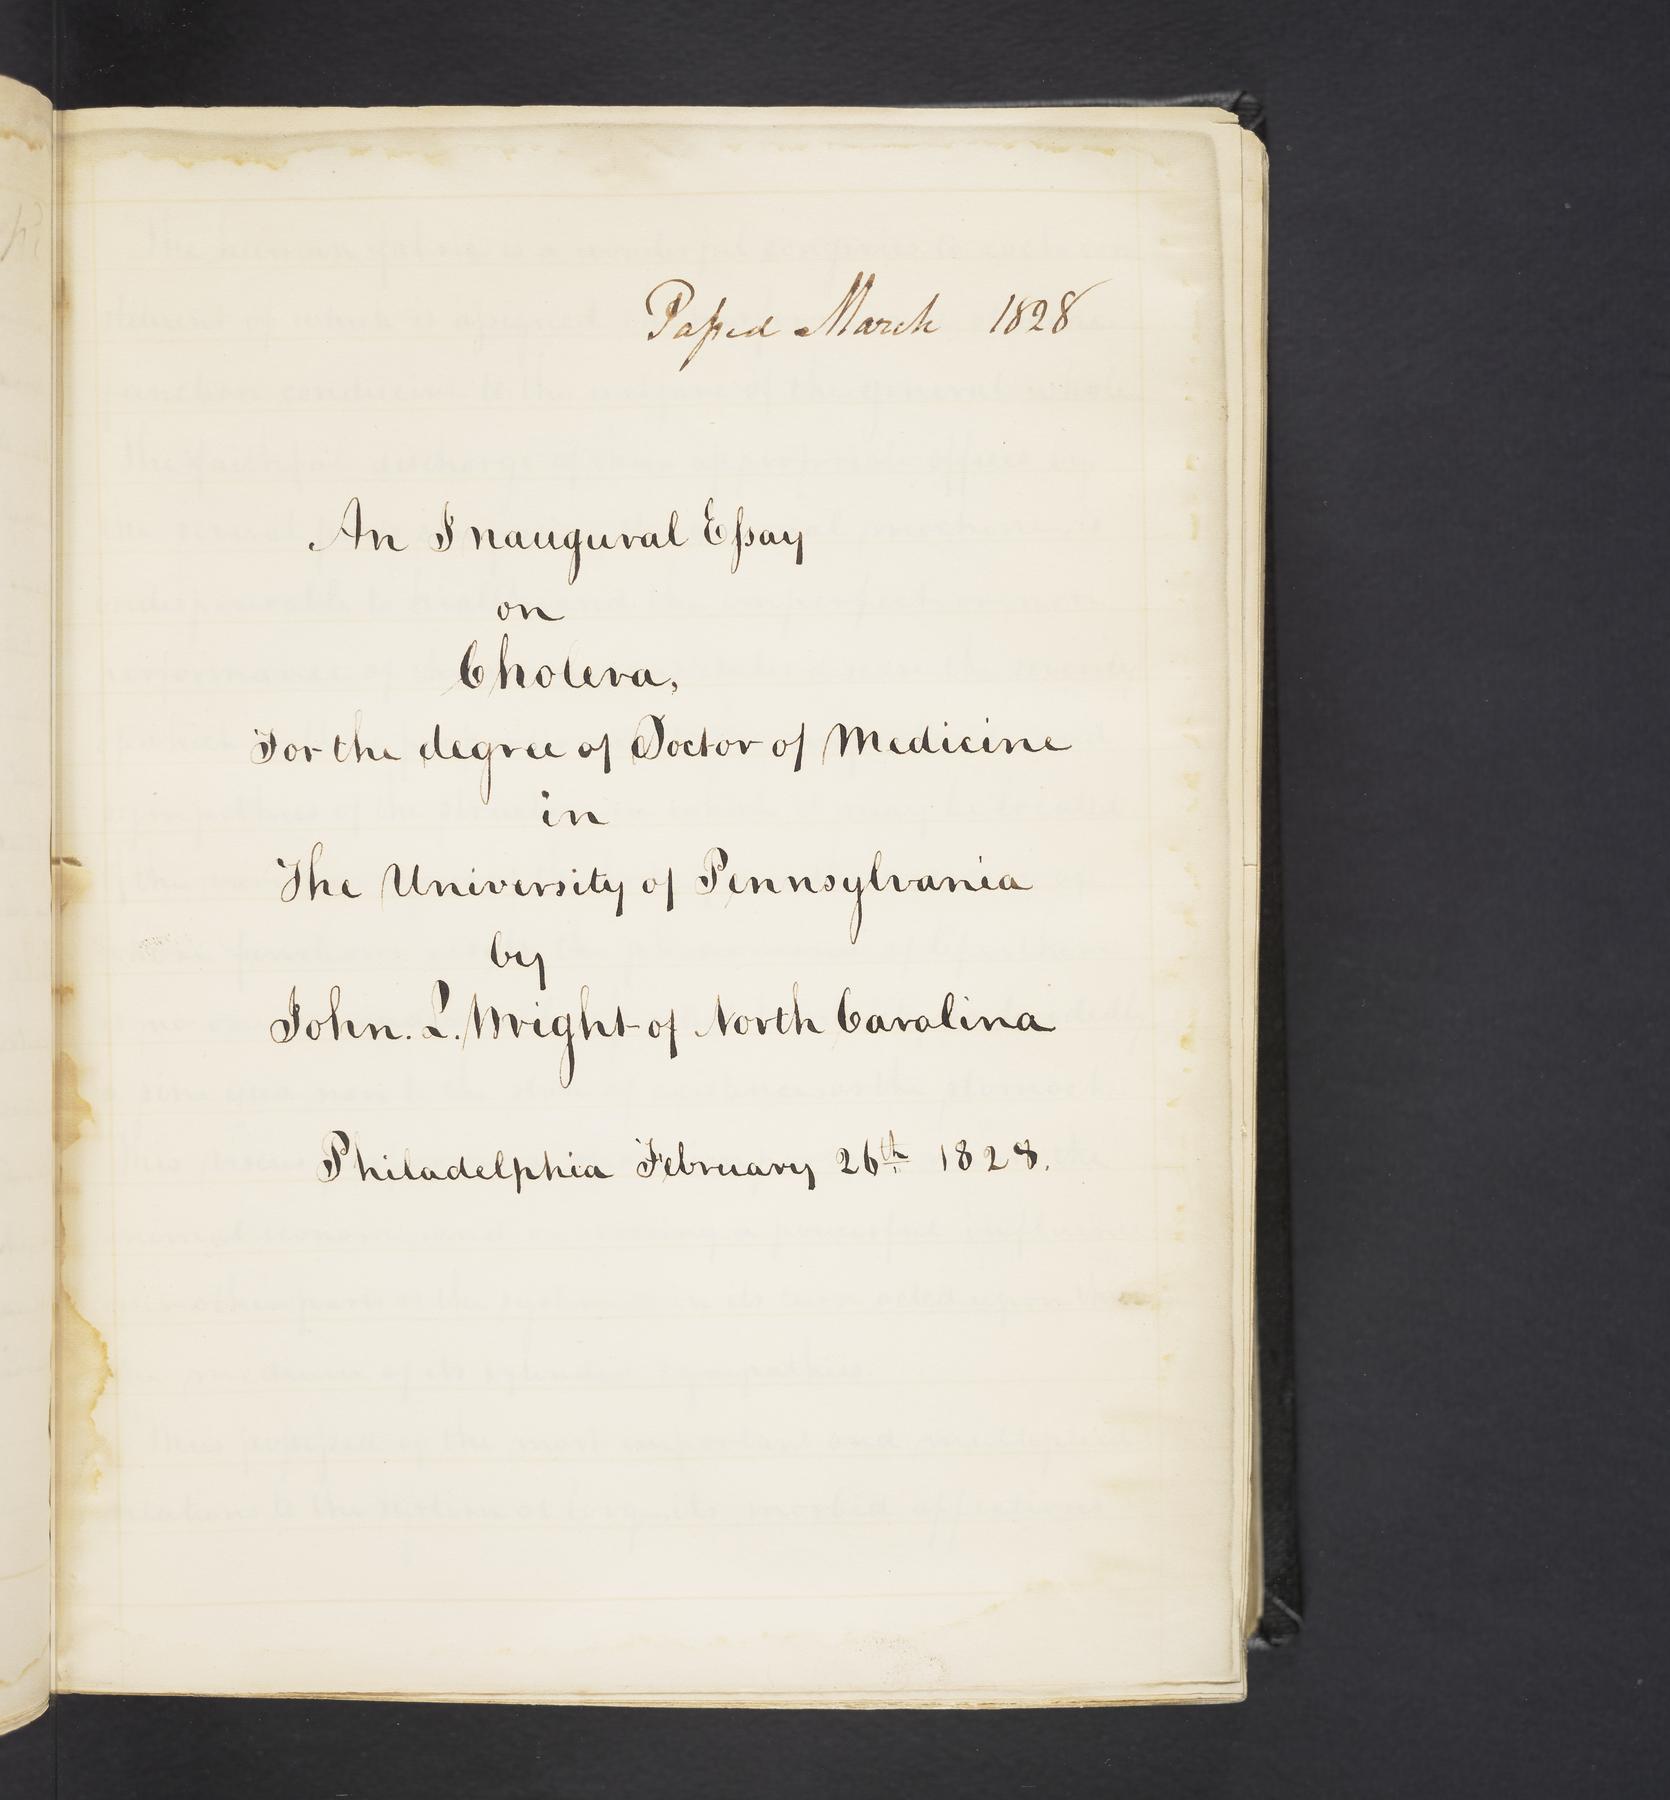 Paſsed March 1828
An Inaugural Eſsay
on
Cholera,
For the degree of Doctor of Medicine
in
The University of Pennsylvania
by
John. L. Wright of North Carolina
Philadelphia February 26th 1828.